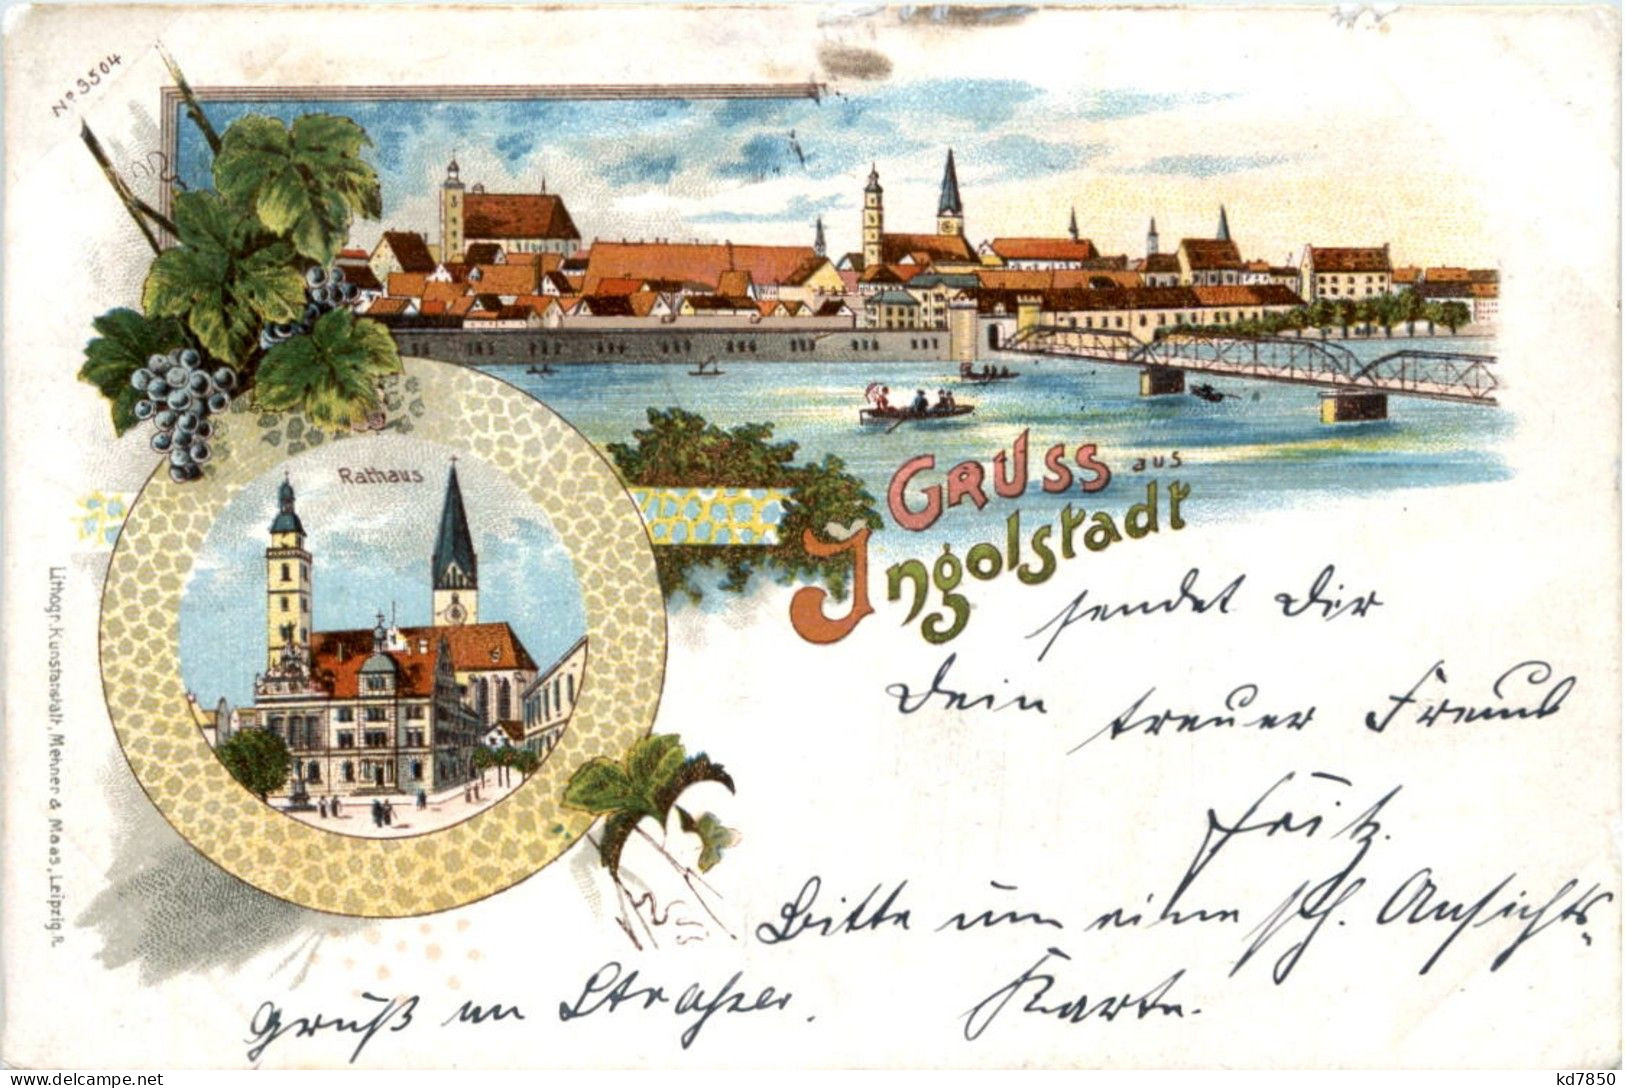 No 3504
Rathaus
GRUSS aus
Ingolstadt
sendet Dir
Dein treuer Freund
Fritz.
Bitte um eine sch. Ansichts-
Karte.
Gruß an
Lithogr. Kunstanstalt, Mehner & Maas, Leipzig R.
kd7850